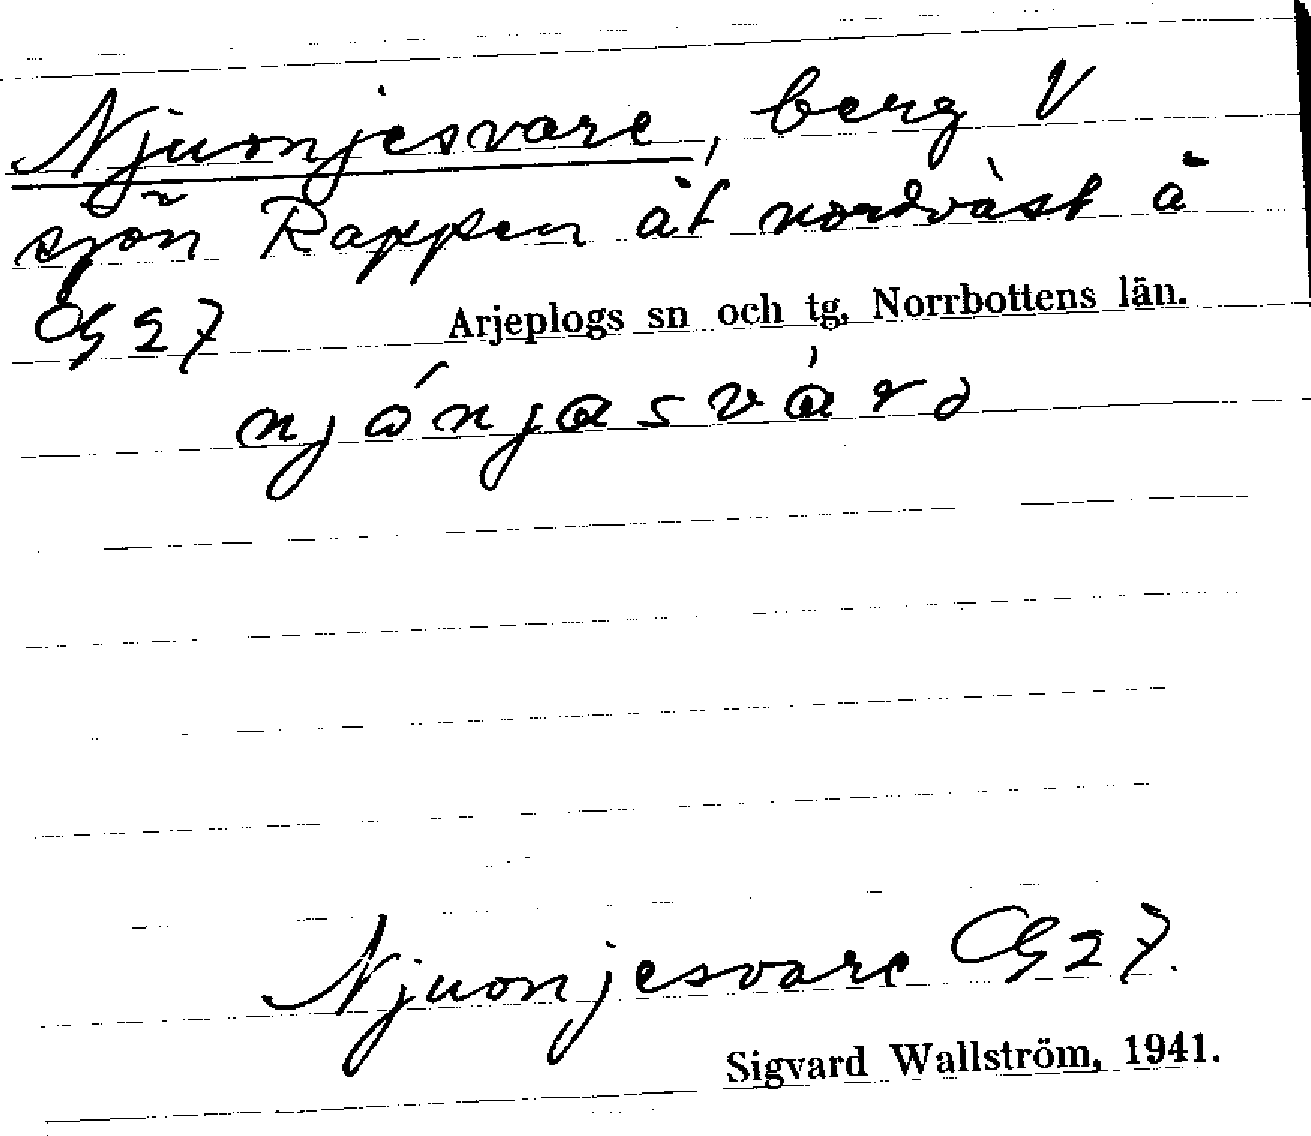 Njuonjesvare, berg V
sjön Rappen åt nordväst å
G 27 Arjeplogs sn och tg, Norrbottens län.
Njuonjesvare G 27.
Sigvard Wallström, 1941.